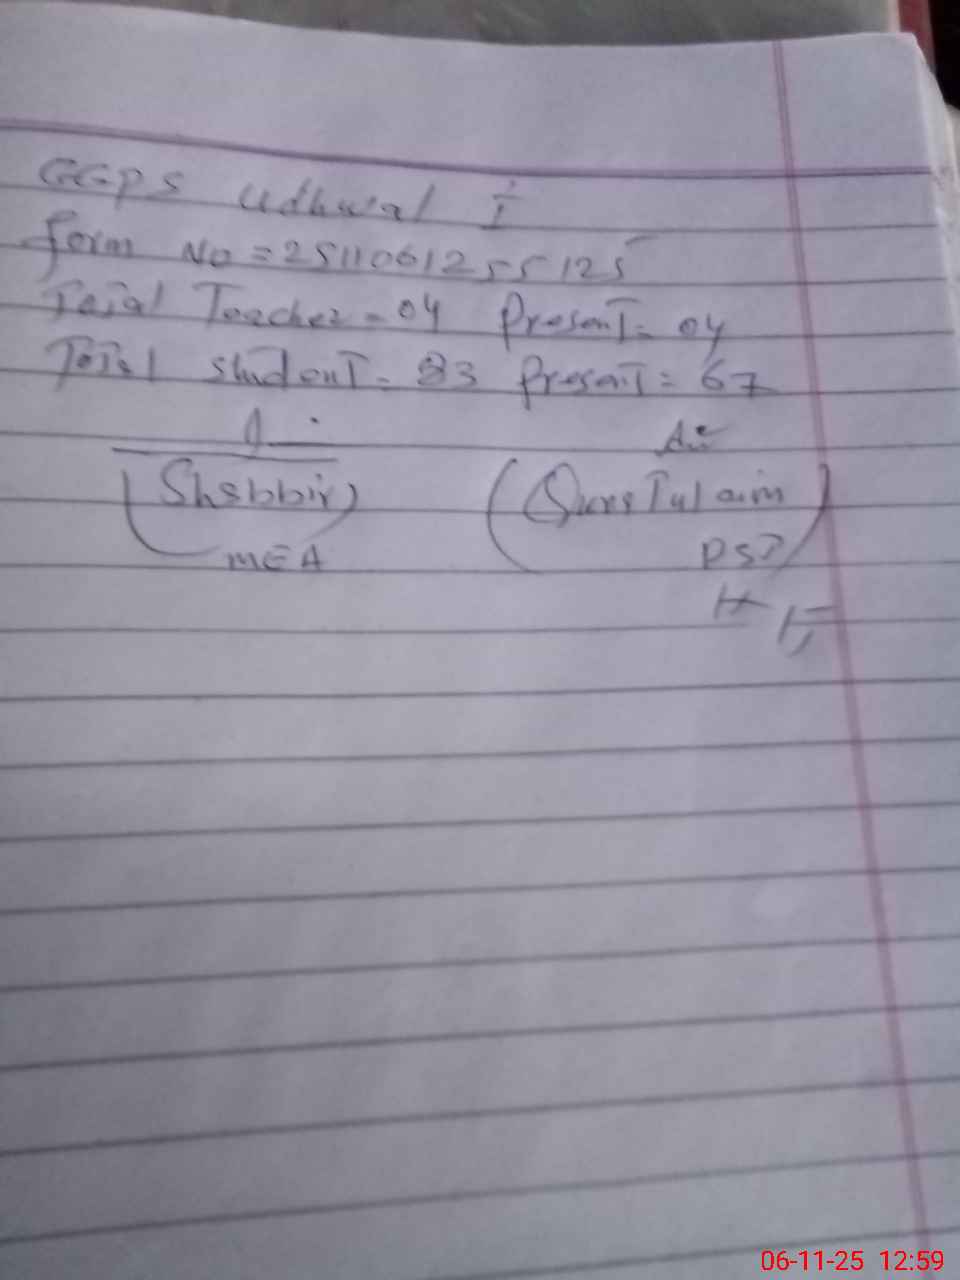 GGPS Udhwal I
Form No = 2511061255125
Total Teacher = 04 Present = 04
Total Student = 83 Present = 67
(Shabbir) (Quratulain
MEA PST)
06-11-25 12:59